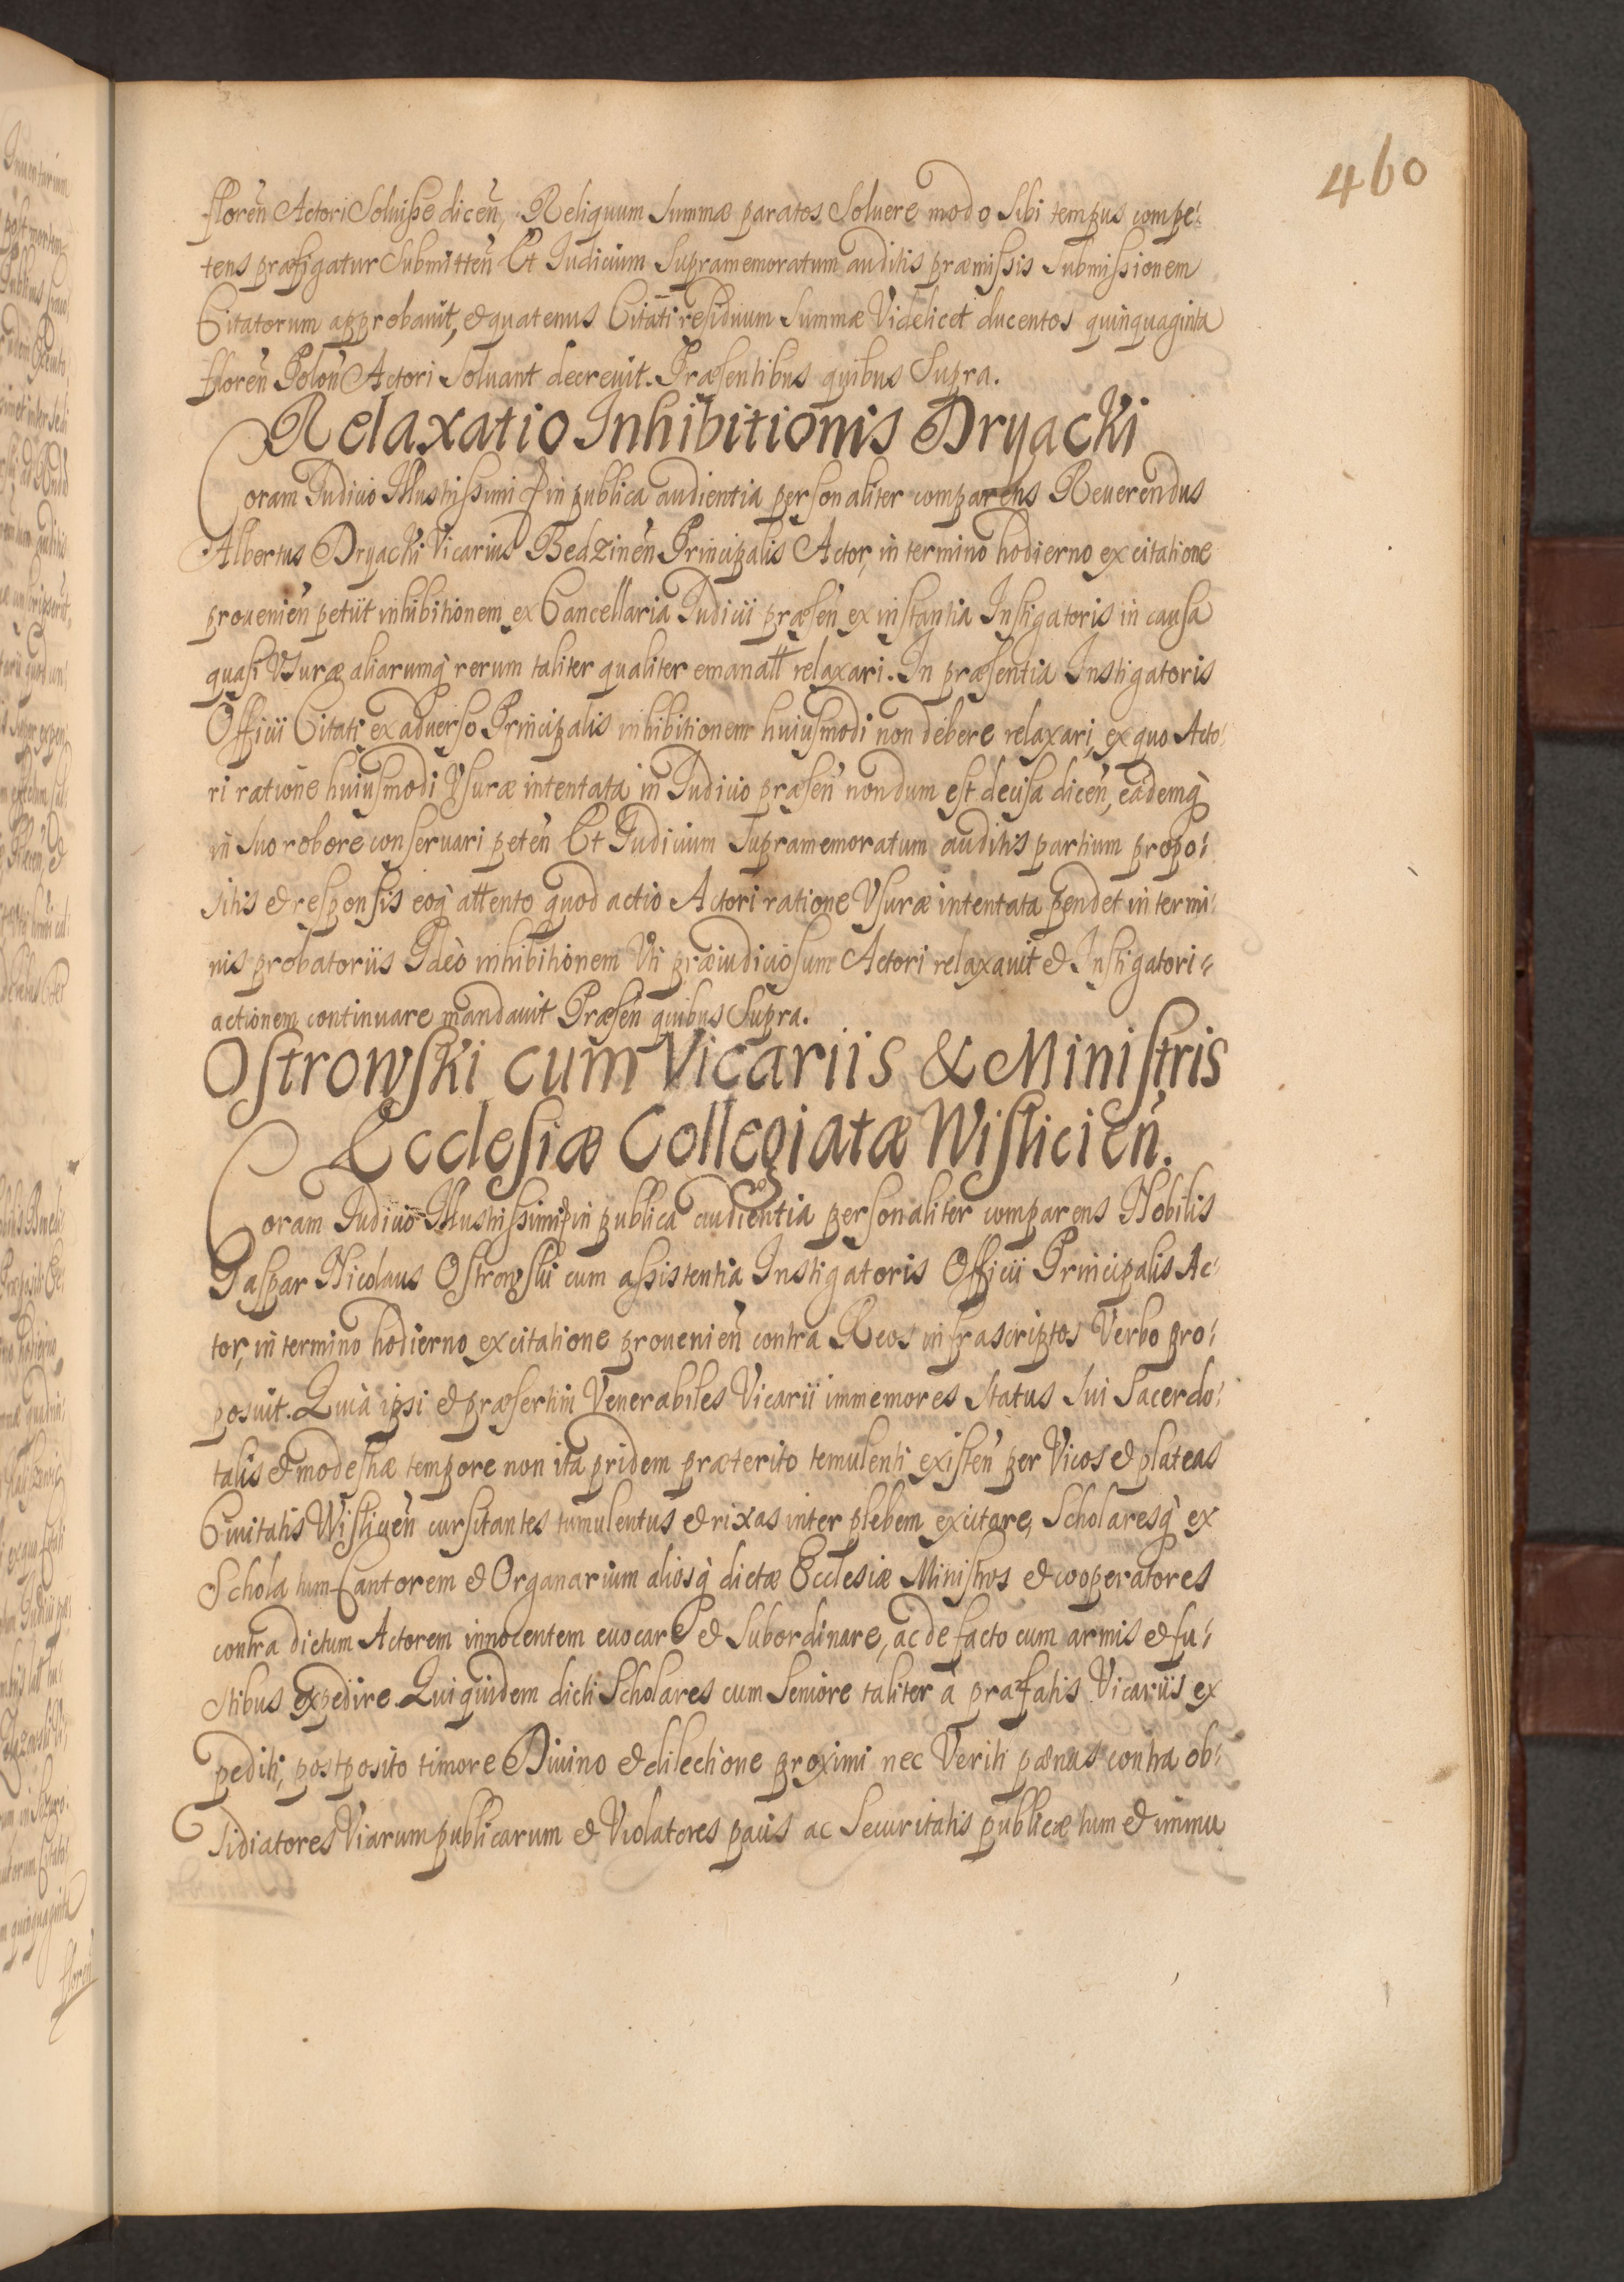 460
floreñ Actori Soluisse diceñ, Reliquum Summæ paratos Soluere modo Sibi tempus compe:
tens præfigatur Submitteñ Et Iudicium Supramemoratum auditis præmissis Submissionem
Citatorum approbauit, & quatenus Citati residuum Summæ Videlicet ducentos quinquaginta
floreñ Poloñ Actori Soluant decreuit. Præsentibus quibus Supra.
Relaxatio Inhibitionis Dryacki
Coram Iudicio Illustrissimi & in publica audientia personaliter comparens Reuerendus
Albertus Dryacki Vicarius Bedzineñ Principalis Actor, in termino hodierno ex citatione
prouenieñ petiit inhibitionem ex Cancellaria Iudicii præseñ ex instantia Instigatoris in causa
quasi Vsuræ aliarumq̀ rerum taliter qualiter emanatt relaxari. In præsentia Instigatoris
Officii Citati ex aduerso Principalis inhibitionem huiusmodi non debere relaxari, ex quo Acto:
ri ratione huiusmodi Vsuræ intentata in Iudicio præseñ nondum est decisa diceñ, eademq̀
in suo robore conseruari peteñ Et Iudicium Supramemoratum auditis partium propo:
sitis & responsis eoq̀ attento quod actio Actori ratione Vsuræ intentata pendet in termi:
nis probatoriis Ideò inhibitionem Vti præiudiciosum Actori relaxauit & Instigatori
actionem continuare mandauit Præseñ quibus Supra.
Ostrowski cum Vicariis & Ministris
Ecclesiæ Collegiatæ Wislicieñ.
Coram Iudicio Illustrissimi & in publica audientia personaliter comparens Nobilis
Gaspar Nicolaus Ostrowski cum assistentia Instigatoris Officii Principalis Ac:
tor, in termino hodierno ex citatione prouenieñ contra Reos infrascriptos Verbo pro:
posuit. Quià ipsi & præsertim Venerabiles Vicarii immemores Status Sui Sacerdo:
talis & modestiæ tempore non ita pridem præterito temulenti existeñ per Vicos & plateas
Ciuitatis Wislicieñ cursitantes tumulentus & rixas inter plebem excitare, Scholaresq̀ ex
Schola tum Cantorem & Organarium aliosq̀ dictæ Ecclesiæ Ministros & cooperatores
contra dictum Actorem innocentem euocare & Subordinare, ac de facto cum armis & fu:
stibus expedire. Quiquidem dicti Scholares cum Seniore taliter à præfatis Vicariis ex
pediti, postposito timore Diuino & dilectione proximi nec Veriti pænas contra ob:
sidiatores Viarum publicarum & Violatores pacis ac Securitatis publicæ tum & immu